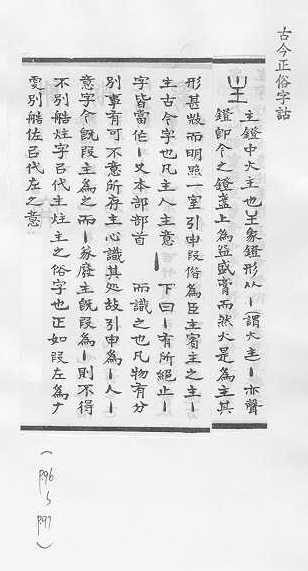 古今正俗字詁
主鐙中火主也𡈼象鐙形从丶謂火主丶亦聲
鐙即今之鐙盞上為盌盛膏而然火是為主其
形甚㣲而明照一室引申叚借為臣主賓主之主丶
主古今字也凡主人主意 丶 下曰丶有所絕止丶
字皆當作丶又本部部首 而識之也凡物有分
別事有可不意所存主心識其處故引申為丶人丶
意字今旣叚主為之而丶篆廢主旣叚為丶則不得
不別造炷字㠯代主炷主之俗字也正如叚左為𠂇
更別造佐㠯代左之意
(P96~P97)